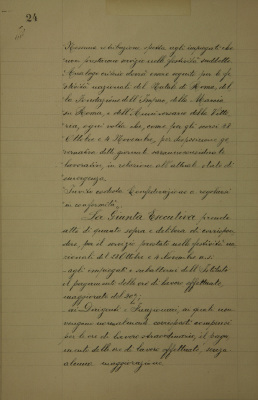 24
Nessuna retribuzione spetta agli impiegati che
non prestarono servizio nelle festività suddette.
Analogo criterio dovrà essere seguito per le fe
stività nazionali del Natale di Roma, del
la Fondazione dell'Impero, della Marcia
su Roma, e dell'Anniversario della Vitto
ria, ogni volta che, come per gli scorsi 28
Ottobre e 4 Novembre, per disposizione go
vernativa dette giornate
lavorative, in relazione all'attuale stato di
emergenza.
Invita codesta Confederazione a regolarsi
in conformità;
La Giunta Esecutiva prende
atto di quanto sopra e delibera di corrispon
dere, per il servizio prestato nelle festività na
zionali del 28 Ottobre e 4 Novembre u.s.
- agli impiegati e subalterni dell'Istituto
il pagamento delle ore di lavoro effettuato,
maggiorate del
- ai Dirigenti e Funzionari, ai quali non
vengono normalmente corrisposti compensi
per le ore di lavoro straordinario, il paga
mento delle ore di lavoro effettuato, senza
alcuna maggiorazione.